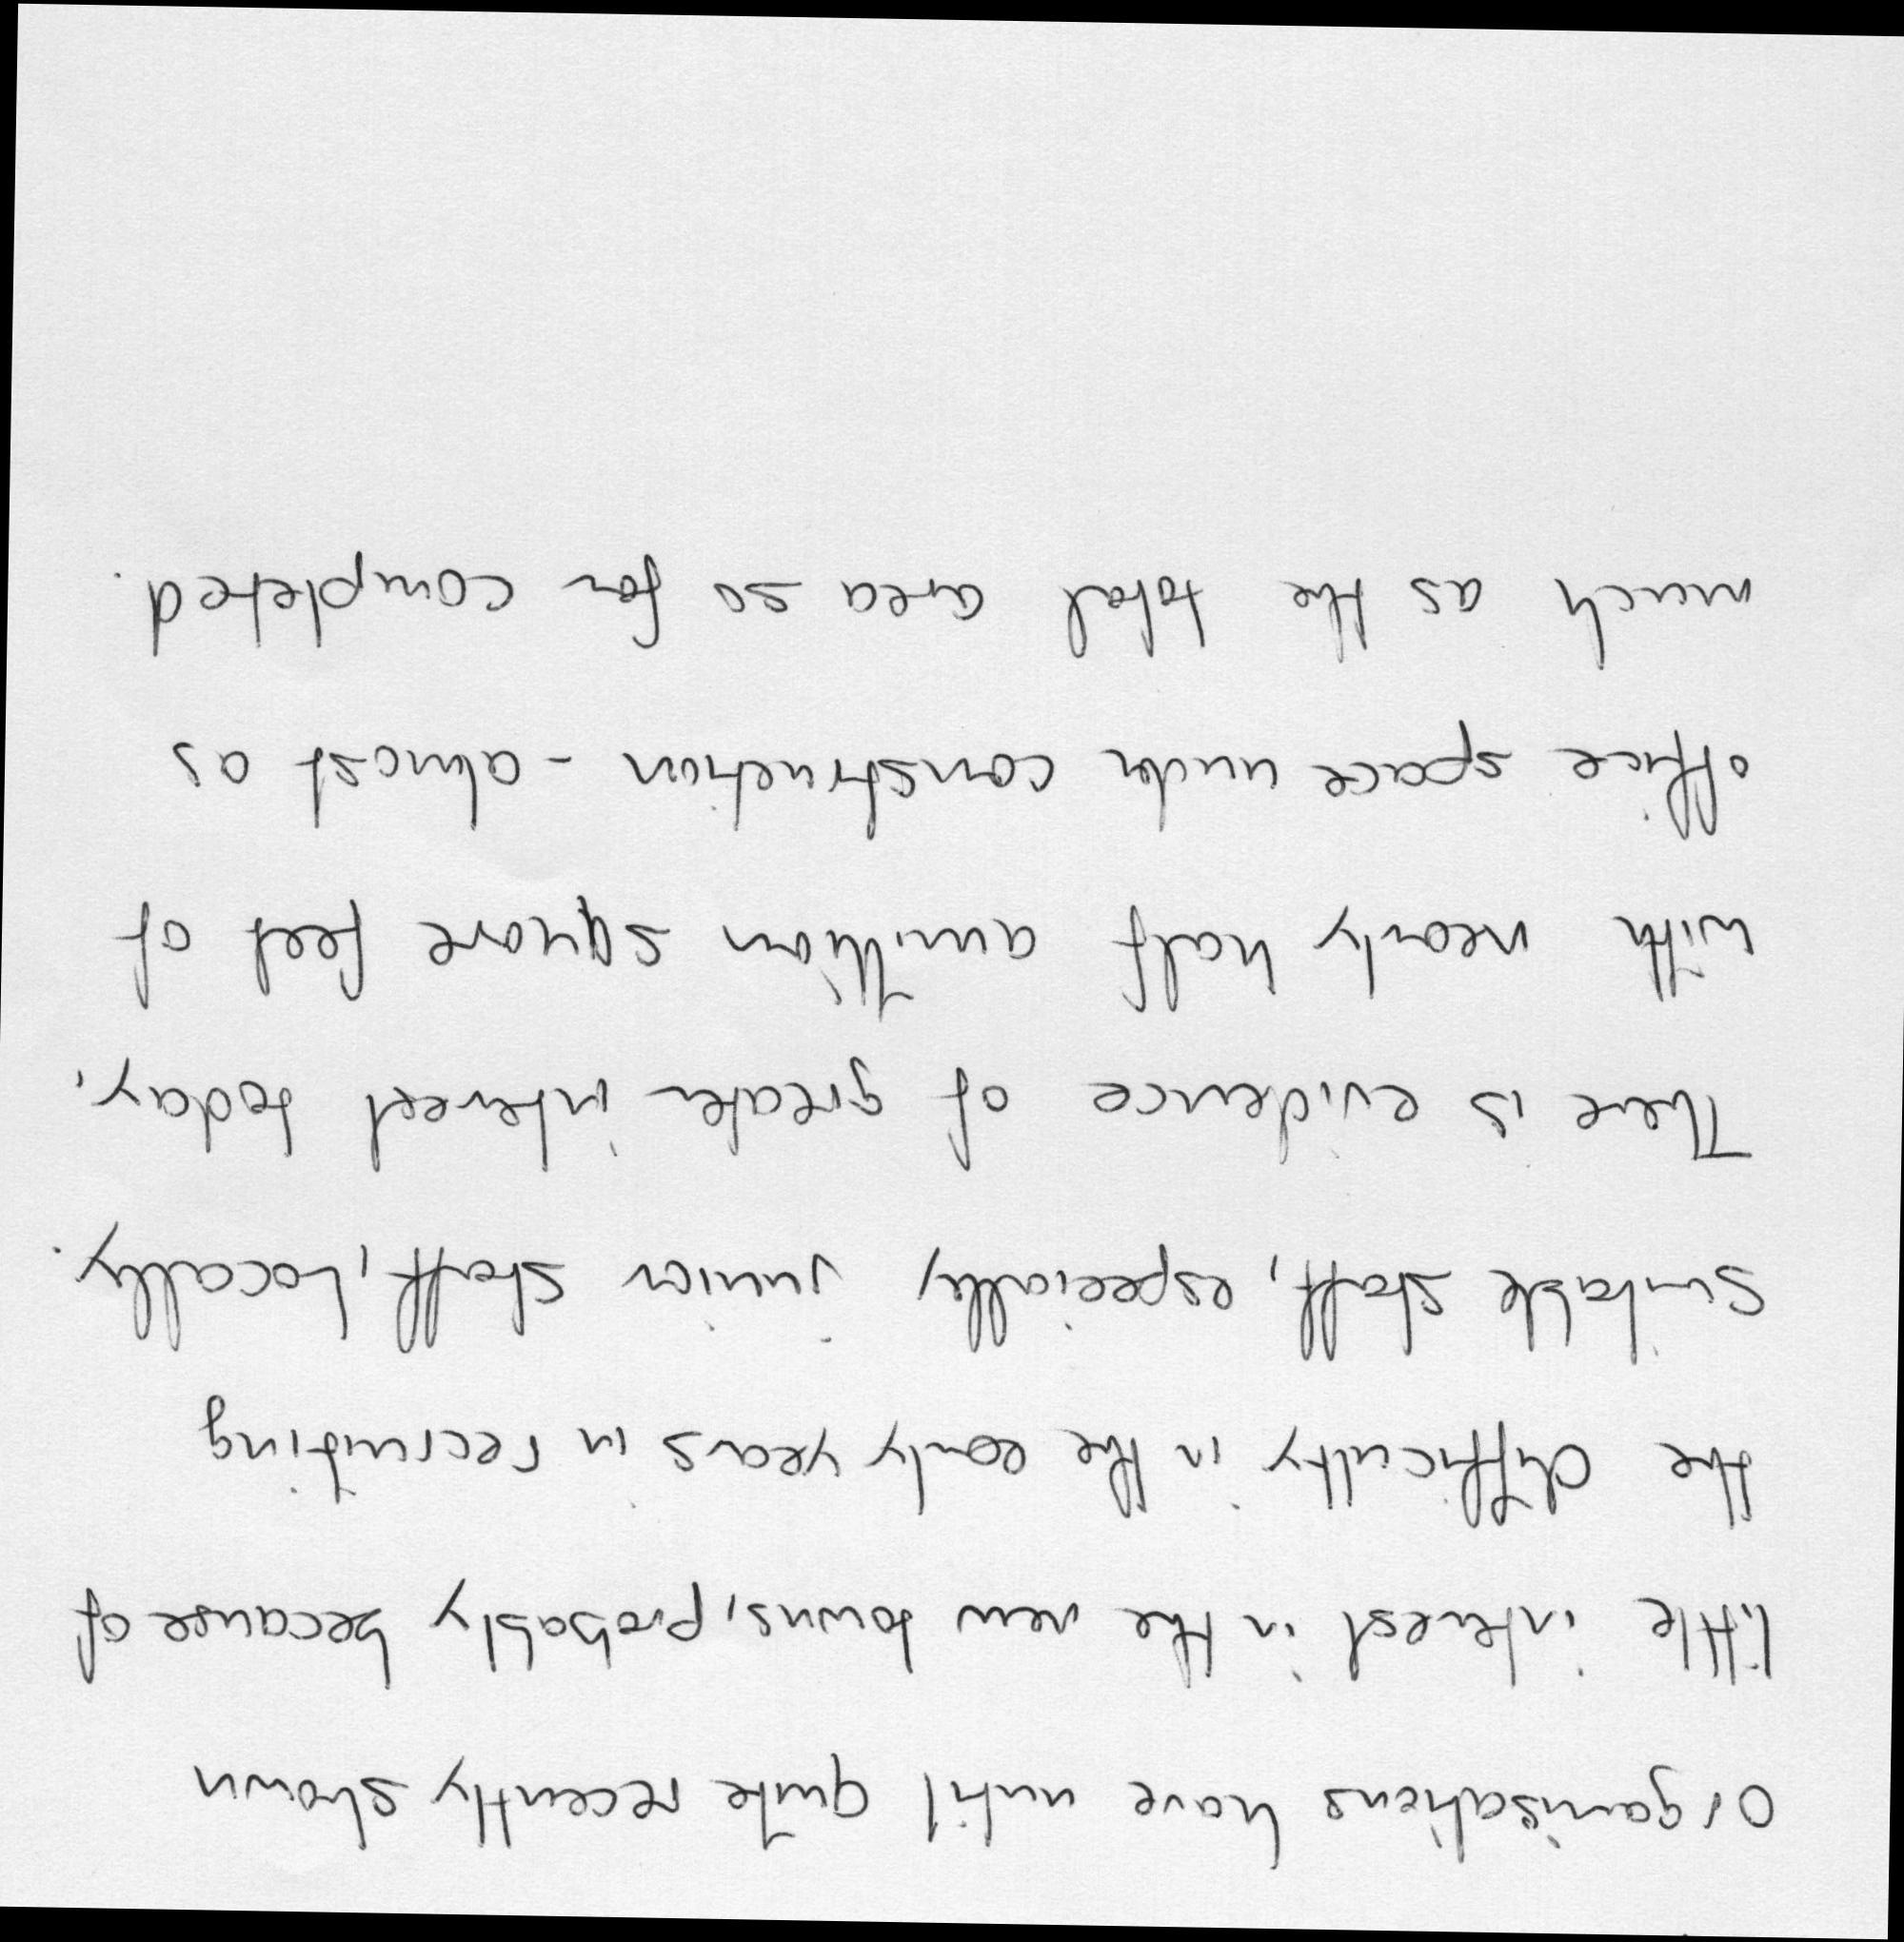 Organisations have until quite recently shown
little interest in the new towns, probably because of
the difficulty in the early years in recruiting
suitable staff, especially junior staff, locally.
There is evidence of greater interest today,
with nearly half a million square feet of
office space under construction - almost as
much as the total area so far completed.